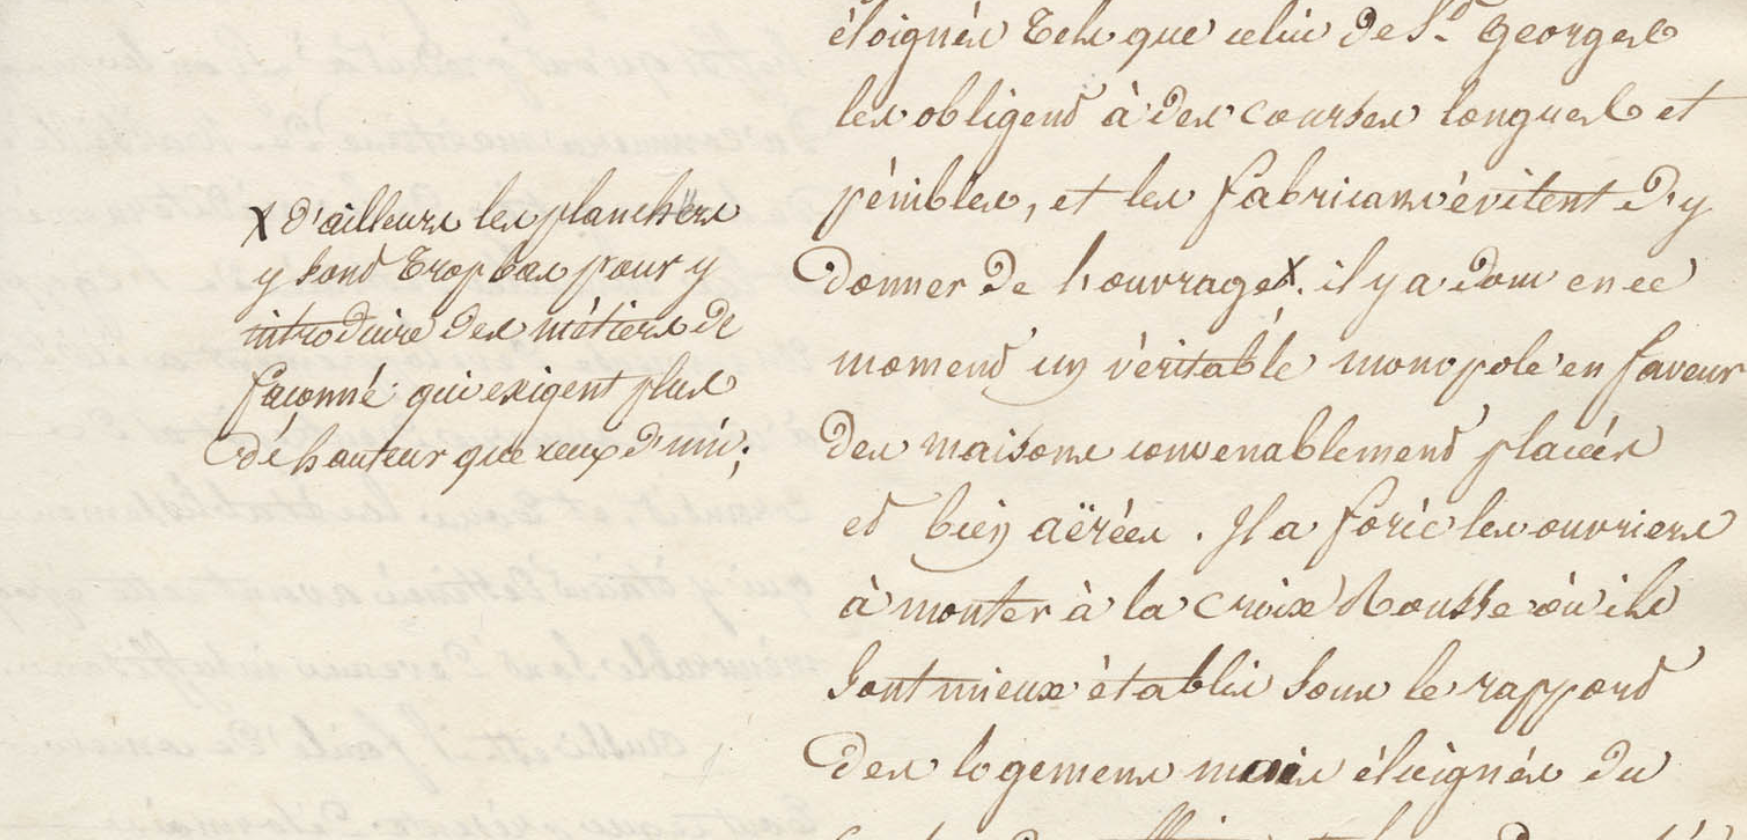 éloignés tels que celui de St. Georges
les obligent à des courses longues et
pénibles, et les fabricans évitent d'y
donner de l'ouvrage X. il y a donc en ce
moment un véritable monopole en faveur
des maisons convenablement placées
et bien aërées. Il a forcé les ouvriers
à monter à la Croix Rousse où ils
sont mieux établis sous le rapport
des logemens mais éloignés du
X d'ailleurs les planchers
y sont trop bas pour y
introduire des métiers de
façonné qui exigent plus
de hauteur que ceux d'uni;